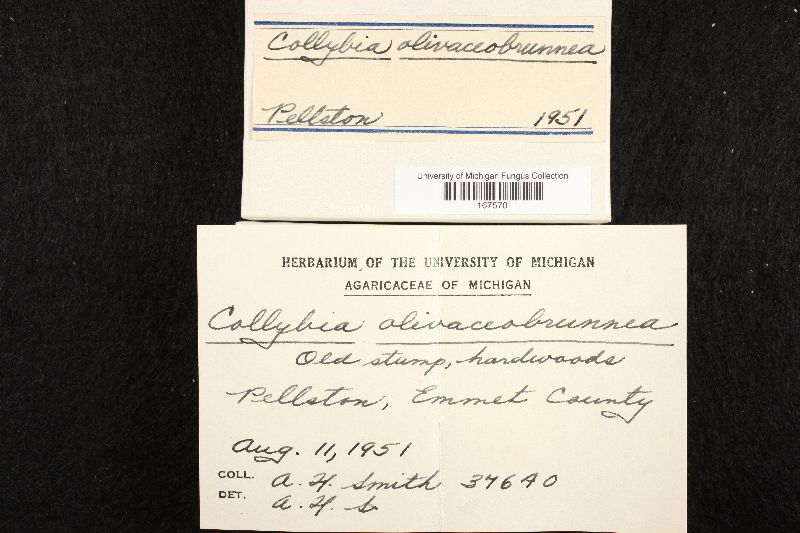 Collybia olivaceobrunnea
Pellston 1951
University of Michigan Fungus Collection
167570
HERBARIUM OF THE UNIVERSITY OF MICHIGAN
AGARICACEAE OF MICHIGAN
Collybia olivaceobrunnea
Old stump, hardwoods
Pellston, Emmet County
Aug. 11, 1951
COLL. A. H. Smith 37640
DET. A. H. S